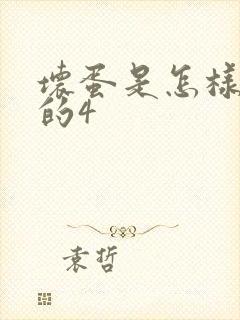 壞蛋是怎樣
的4
袁哲